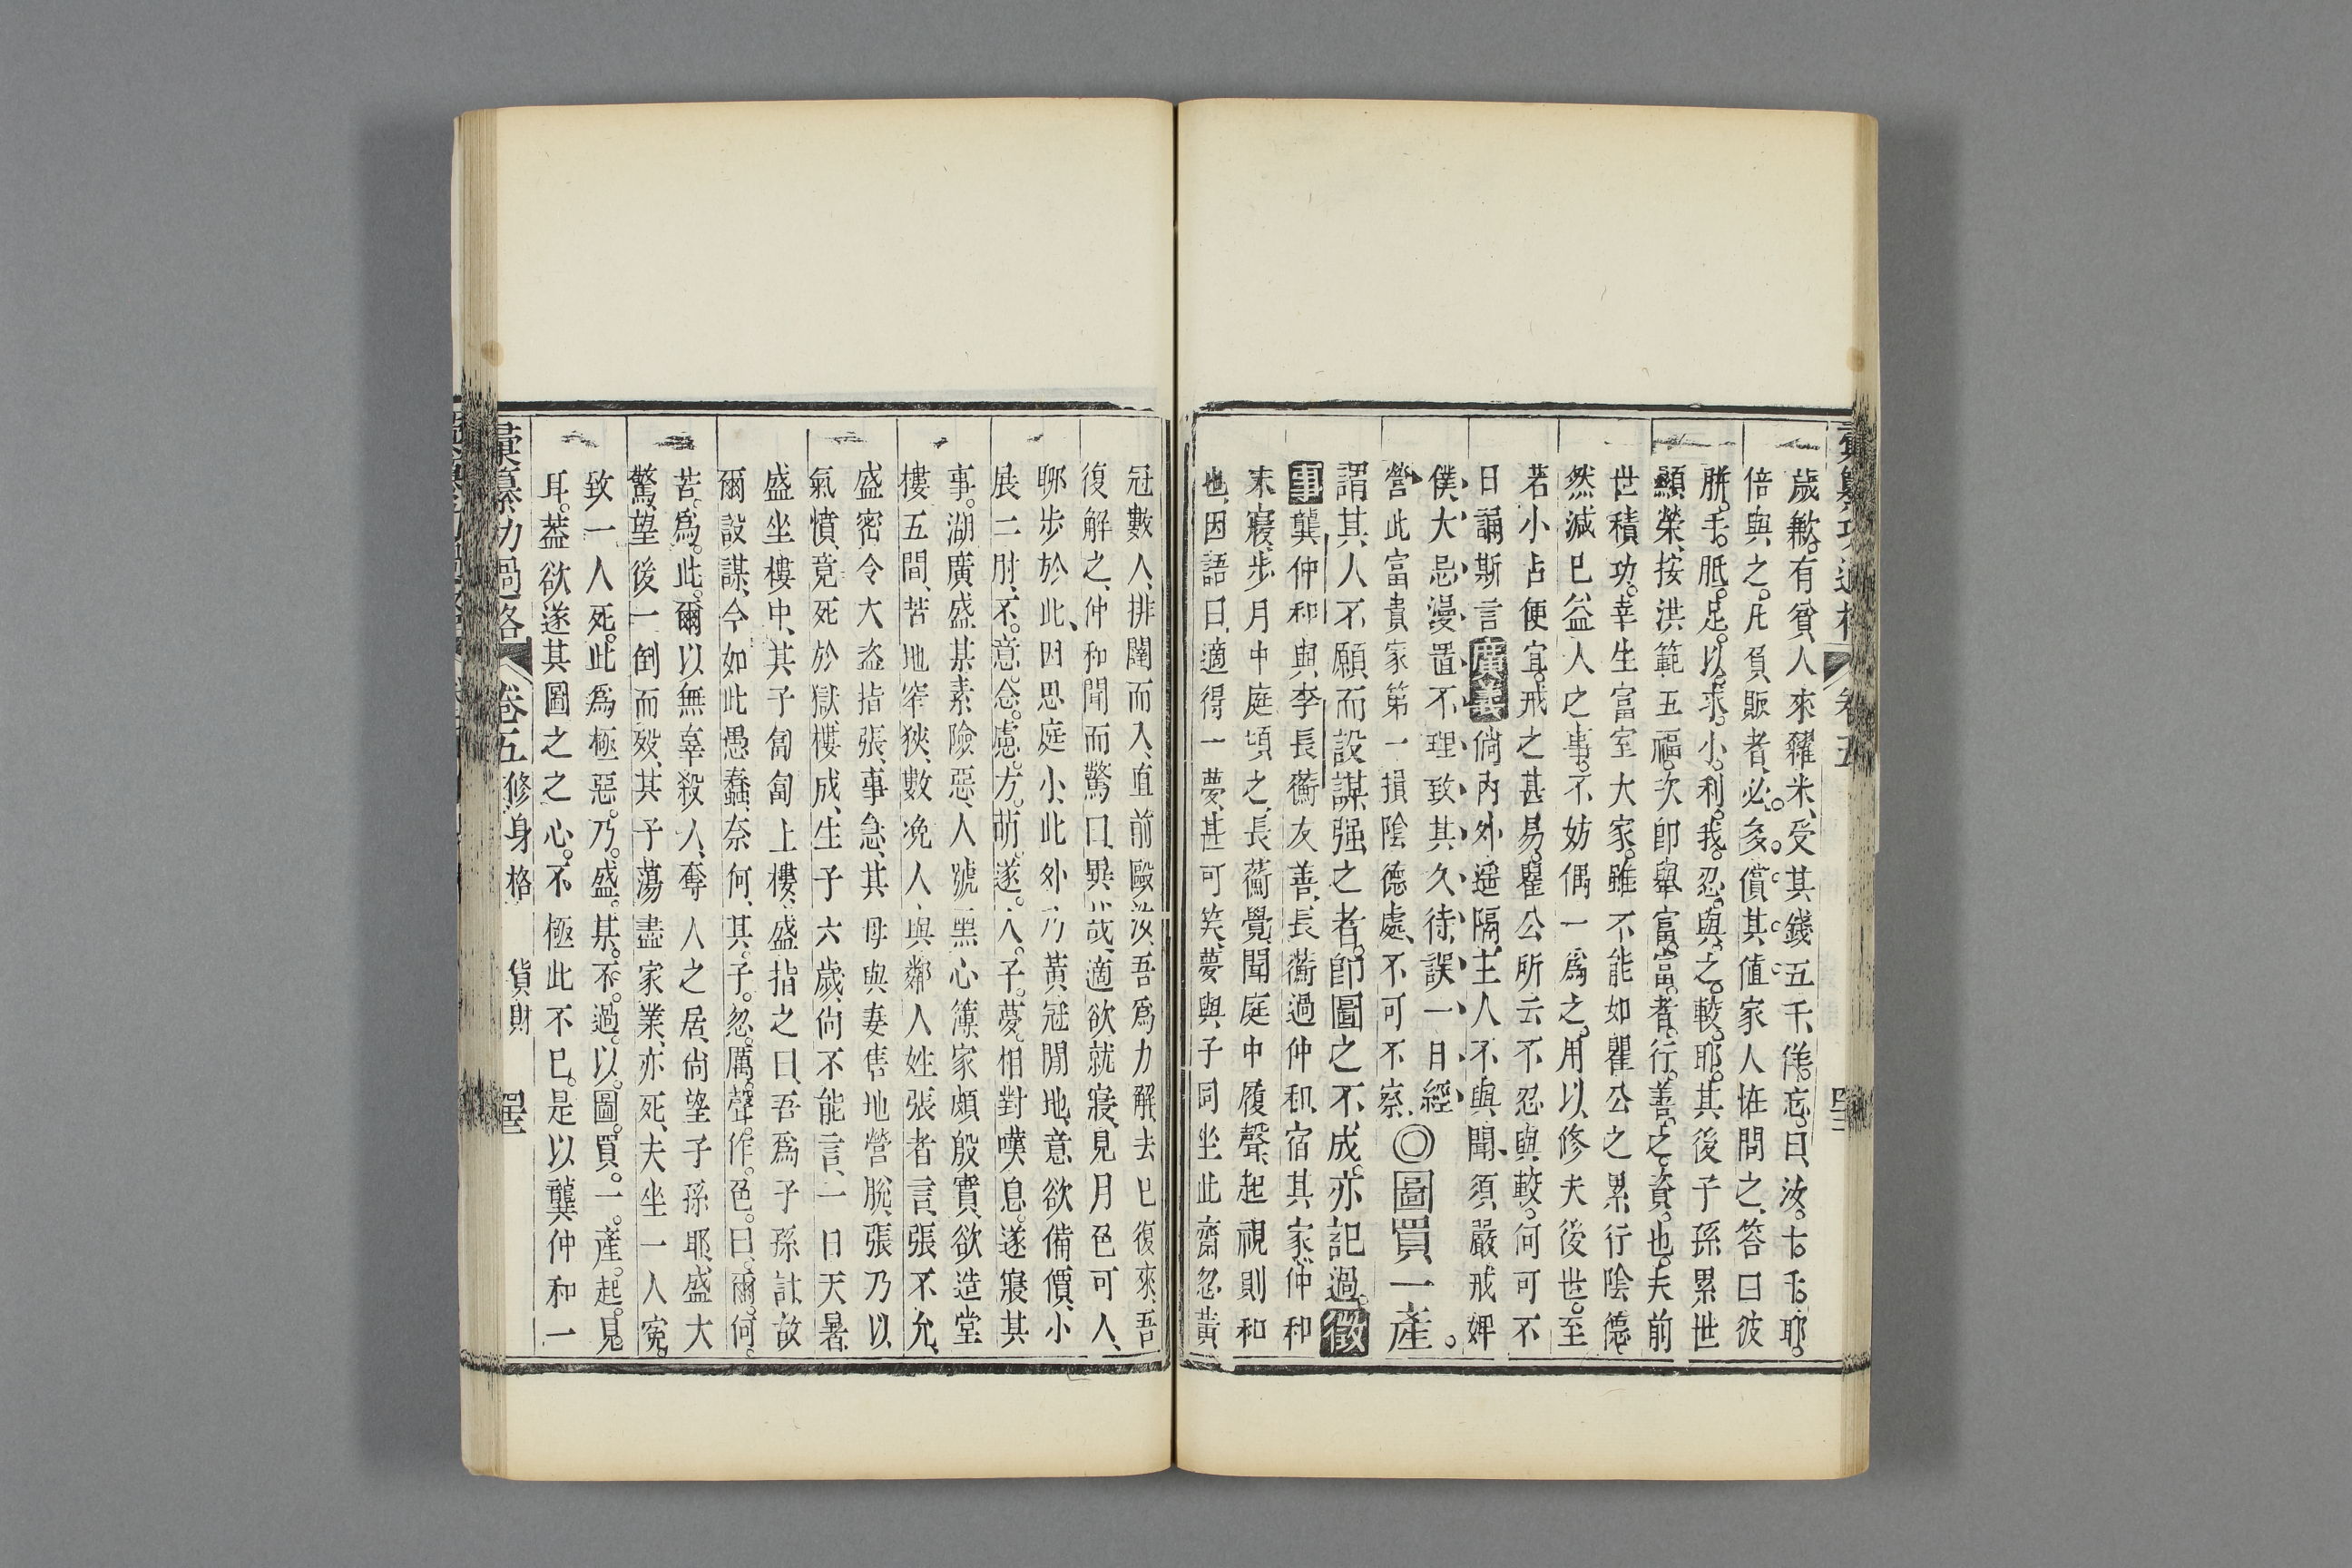 歲歉。有貧人來糴米、受其錢五千、佯。忘。曰、汝。七。千。耶。
倍與之。凡負販者、必。多。償。其。值。家人怪問之、答曰彼
胼。手。胝。足。以。求。小。利。我。忍。與。之。較。耶。其後子孫累世
顯榮、按洪範五福、次卽舉富。富。者。行。善。之。資。也。夫前
世積功。幸生富室大家。雖不能如瞿公之累行陰德。
然減巳益人之事。不妨偶一爲之。用以修夫後世。至
若小占便宜。戒之甚易。瞿公所云不忍與較。何可不
日誦斯言廣義倘內外遥隔、主人不與聞、須嚴戒婢
僕、大忌漫置不理、致其久待、誤一日經
營、此富貴家第一損陰德處、不可不察、◎圖買一產。
謂其人不願而設謀强之者。卽圖之不成。亦記過。徵
事龔仲和與李長蘅友善、長蘅過仲和、宿其家、仲和
未寢、步月中庭、頃之、長蘅覺、聞庭中履聲、起視則和
也、因語曰、適得一夢、甚可笑、夢與子同坐此齋、忽黃
冠數人、排闥而入、直前毆汝、吾爲力解、去巳復來、吾
復解之、仲和聞而驚曰、異哉、適欲就寢、見月色可人、
聊步於此、因思庭小、此外乃黃冠閒地、意欲備價、小
展二肘、不。意。念。慮。方。萌。遂。入。子。夢。相對嘆息。遂寢其
事。湖廣盛某素險惡、人號黑心簿、家頗殷實、欲造堂
樓五間、苦地窄狹、數浼人與鄰人姓張者言、張不允、
盛密令大盜指張、事急、其母與妻售地營脫、張乃以
氣憤、竟死於獄、樓成、生子六歲、尙不能言、一日天暑
盛坐樓中、其子匍匐上樓、盛指之曰、吾爲子孫計、故
爾設謀、今如此愚蠢、奈何、其。子。忽。厲。聲。作。色。曰。爾。何。
苦。爲。此。爾以無辜殺人、奪人之居、尙望子孫耶、盛大
驚、望後一倒而歿、其子蕩盡家業、亦死、夫坐一人寃。
致一人死。此爲極惡。乃。盛。某。不。過。以。圖。買。一。產。起。見。
耳。葢欲遂其圖之之心。不極此不巳。是以龔仲和一
彙纂功過格 卷五 修身格 貨財 四三